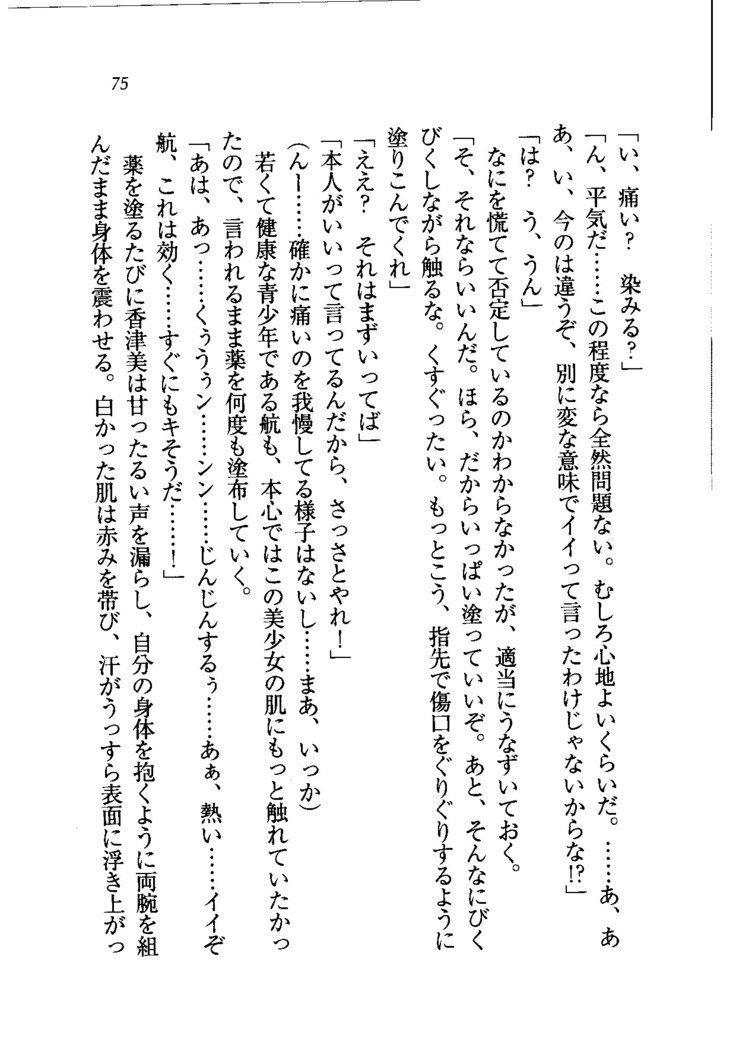 75
「い、痛い？　染みる？」
「ん、平気だ……この程度なら全然問題ない。むしろ心地よいくらいだ。……あ、あ
あ、い、今のは違うぞ、別に変な意味でイイって言ったわけじゃないからな!?」
「は？　う、うん」
なにを慌てて否定しているのかわからなかったが、適当にうなずいておく。
「そ、それならいいんだ。ほら、だからいっぱい塗っていいぞ。あと、そんなにびく
びくしながら触るな。くすぐったい。もっとこう、指先で傷口をぐりぐりするように
塗りこんでくれ」
「ええ？　それはまずいってば」
「本人がいいって言ってるんだから、さっさとやれ！」
（んー……確かに痛いのを我慢してる様子はないし……まあ、いっか）
若くて健康な青少年である航も、本心ではこの美少女の肌にもっと触れていたかっ
たので、言われるまま薬を何度も塗布していく。
「あは、あっ……くぅうぅン……ンン……じんじんするぅ……あぁ、熱い……イイぞ
航、これは効く……すぐにもキそうだ……！」
薬を塗るたびに香津美は甘ったるい声を漏らし、自分の身体を抱くように両腕を組
んだまま身体を震わせる。白かった肌は赤みを帯び、汗がうっすら表面に浮き上がっ